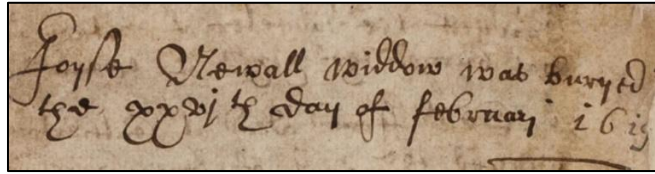 Joyse Newall widdow was buryed
the xxvjth day of februari 1619